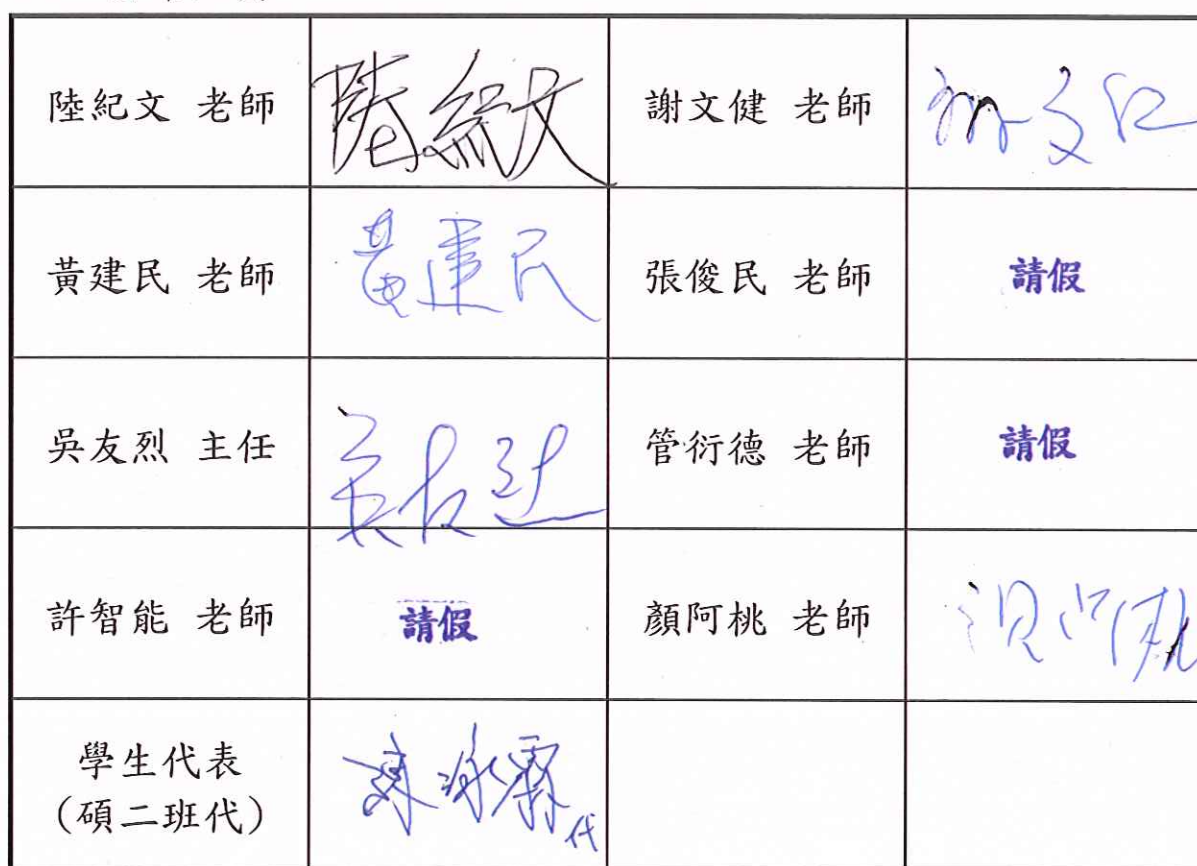 陸紀文 老師 陸紀文 謝文健 老師
黃建民 老師 黃建民 張俊民 老師 請假
吳友烈 主任 吳友烈 管衍德 老師 請假
許智能 老師 請假 顏阿桃 老師
學生代表
(碩二班代) 代